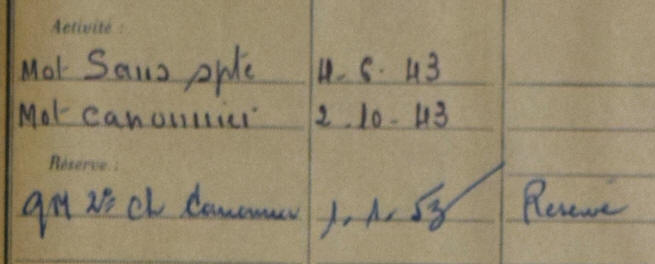 Activité :
Mot Sans spte 4. 6. 43
Mot canonnier 2.10.43
Réserve :
QM 2e cl Canonnier 1. 1. 53 Reserve